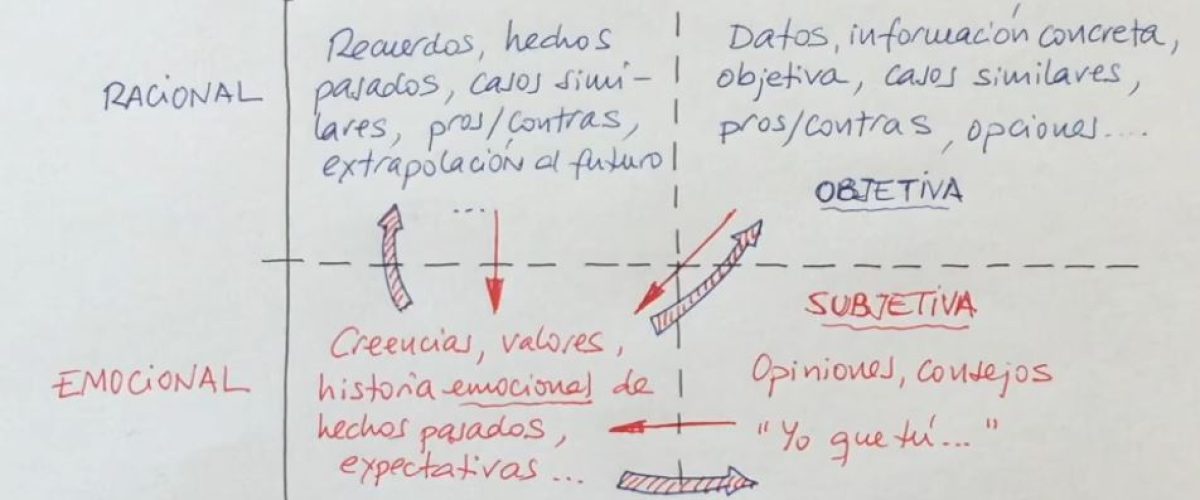 RACIONAL
Recuerdos, hechos
pasados, casos simi-
lares, pros/contras,
extrapolación al futuro
....
Datos, información concreta,
objetiva, casos similares,
pros/contras, opciones....
OBJETIVA
EMOCIONAL
Creencias, valores,
historia emocional de
hechos pasados,
expectativas...
SUBJETIVA
Opiniones, consejos
"Yo que tú..."